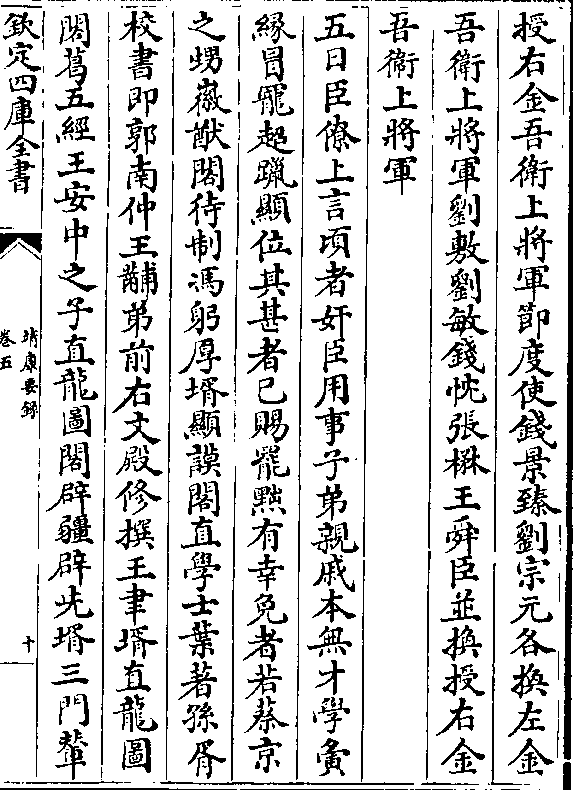 授右金吾衛上將軍節度使錢景臻劉宗元各換左金
吾衛上將軍劉敷劉敏錢忱張楙王舜臣並換授右金
吾衛上將軍
五日臣僚上言頃者奸臣用事子弟親戚本無才學夤
緣冒寵超躐顯位其甚者已賜罷黜有幸免者若蔡京
之甥徽猷閣待制馮躬厚壻顯謨閣直學士葉著孫胥
校書郎郭南仲王黼弟前右文殿修撰王聿壻直龍圖
閣葛五經王安中之子直龍圖閣辟疆辟光壻三門輦
欽定四庫全書
靖康要錄
卷五
十